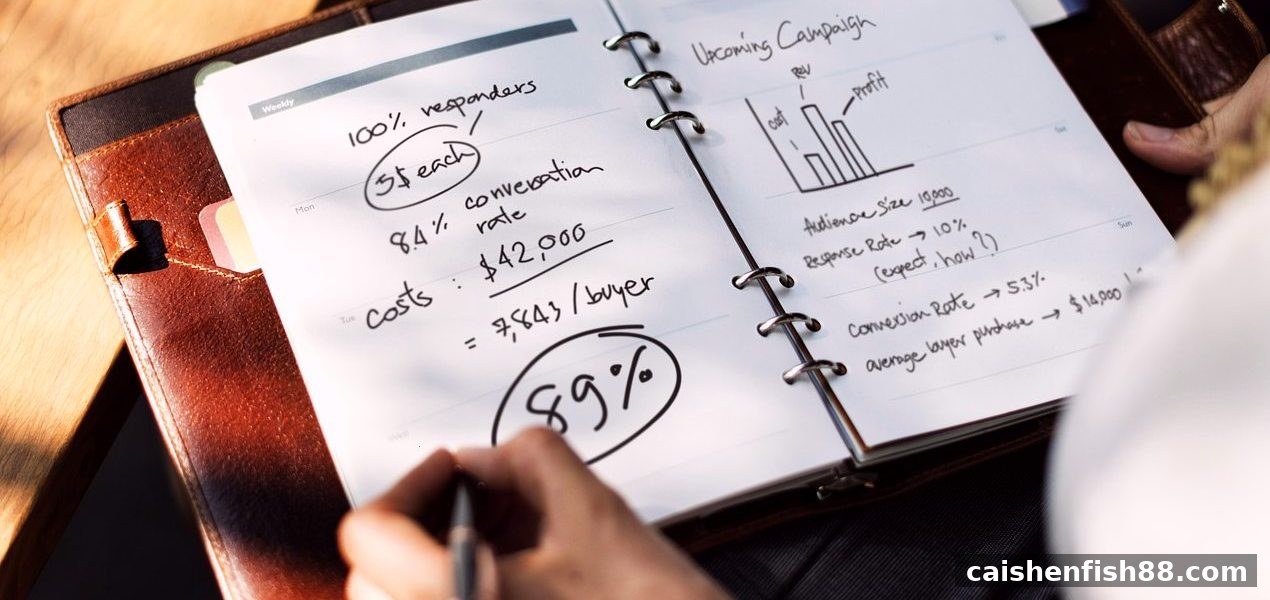 Weekly
100% responders
5$ each
8.4% conversation
rate
costs : $42,000
= 7,843 / buyer
89%
Mon
Tue
Upcoming Campaign
cost
Rev
profit
Audience Size 10,000
Response Rate → 10%
(expect, how?)
Conversion Rate → 5.3%
average buyer purchase → $14,000
Sun
caishenfish88.com